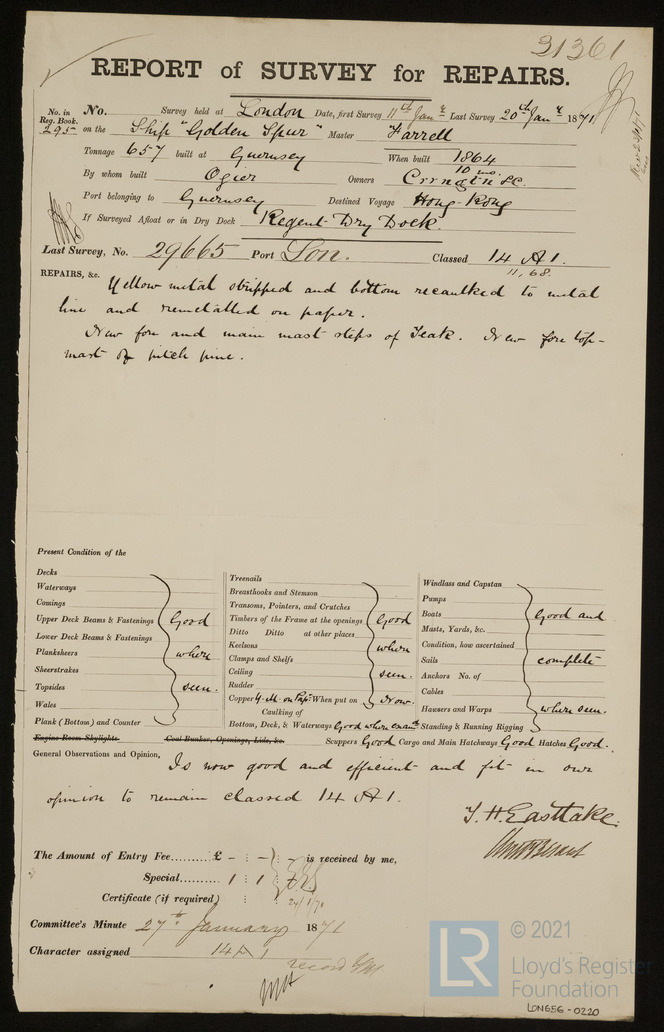 31361
REPORT of SURVEY for REPAIRS.
No. in Reg. Book. 295
No. Survey held at London Date, first Survey 11th Jany Last Survey 20th Jany 1871
on the Ship "Golden Spur" Master Farrell
Tonnage 657 built at Guernsey When built 1864
10 mo.
By whom built Ogier Owners
Port belonging to Guernsey Destined Voyage Hong-Kong
If Surveyed Afloat or in Dry Dock Regent Dry Dock.
Last Survey, No. 29665 Port Lon. Classed 14 A1.
11,68.
REPAIRS, &c. Yellow metal stripped and bottom recaulked to metal
line and remetalled on paper.
New fore and main mast steps of Teak. New fore top-
mast of pitch pine.
Present Condition of the
Decks
Waterways
Comings
Upper Deck Beams & Fastenings
Lower Deck Beams & Fastenings
Planksheers
Sheerstrakes
Topsides
Wales
Plank (Bottom) and Counter
Good
where
seen.
Treenails
Breasthooks and Stemson
Transoms, Pointers, and Crutches
Timbers of the Frame at the openings
Ditto Ditto at other places
Keelsons
Clamps and Shelfs
Ceiling
Rudder
Good
where
seen.
Copper Y.M. on Papr When put on Now.
Caulking of
Bottom, Deck, & Waterways Good where examd
Windlass and Capstan
Pumps
Boats
Masts, Yards, &c.
Condition, how ascertained
Sails
Anchors No. of
Cables
Hawsers and Warps
Standing & Running Rigging
Good and
complete
where seen.
Engine Room Skylights Coal Bunker, Openings, Lids, &c. Scuppers Good Cargo and Main Hatchways Good Hatches Good.
General Observations and Opinion, Is now good and efficient and fit in our
opinion to remain classed 14 A1.
T. H. Eastlake.
The Amount of Entry Fee £ - : - : - is received by me,
Special 1 : 1 :
Certificate (if required) : :
Committee's Minute 27th January 1871
Character assigned 14 A 1
record
LR
© 2021
Lloyd's Register
Foundation
LON656-0220